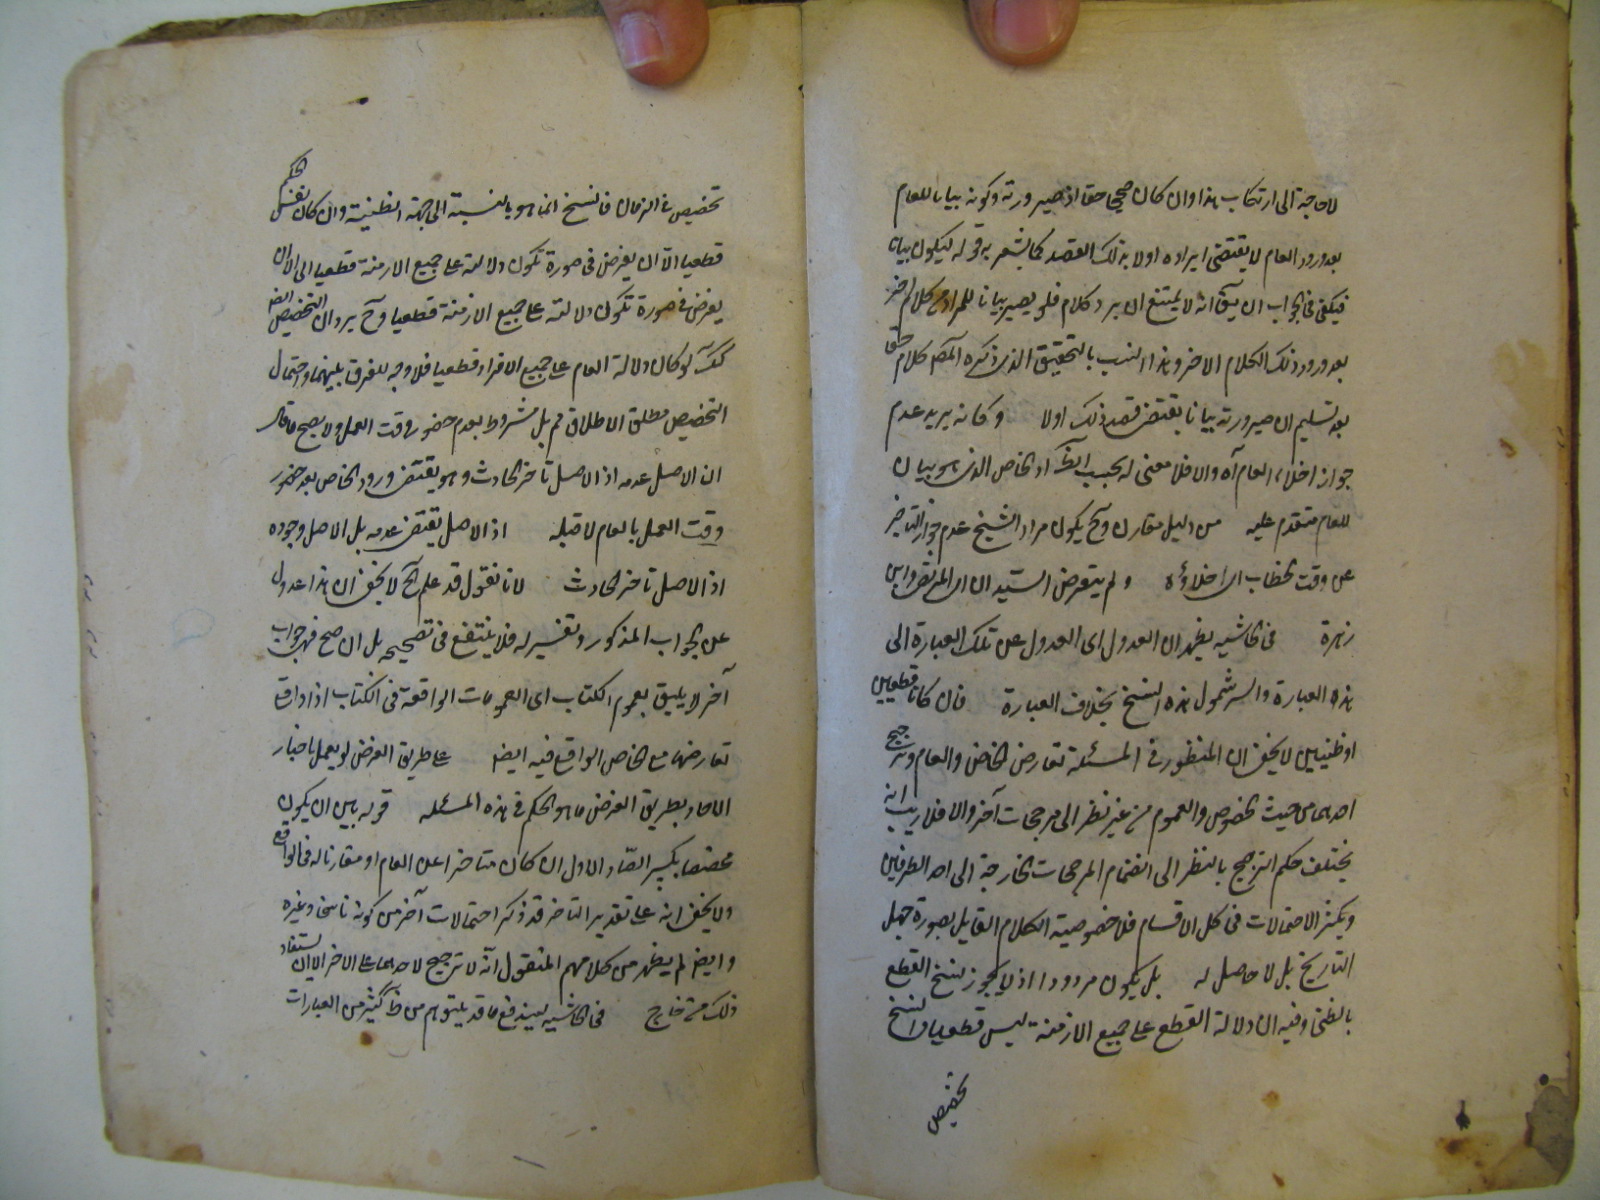 لا حاجة الى ارتكاب هذا وان كان صحيحا حقا اذ صيرورته وكونه بيانا للعام
بعد ورود العام لا يقتضى ايراده اولا بذلك القصد كما يشعر به قوله ليكون بيان
فيكفى فى الجواب ان يق انه لا يمتنع ان يرد كلام فلو يصير بيانا للمراد من كلام اخر
بعد ورود ذلك الكلام الاخر وهذا انسب بالتحقيق الذى ذكره المص كلام حق
بعد تسليم ان صيرورته بيانا يقتضى قصد ذلك اولا وكانه يريد عدم
جواز اخلاء العام آه والا فلا معنى له بحسب الظ اذ الخاص الذى هو بيان
للعام متقدم عليه من دليل مقارن وح يكون مراد الشيخ عدم جواز التاخير
عن وقت الخطاب اى اخلاؤه ولم يتعرض السيد ان اى المرتضى وابن
زهرة فى الحاشيه يظهر ان العدول اى العدول عن تلك العبارة الى
هذه العبارة والسر شمول هذه النسخ بخلاف العبارة فان كانا قطعيين
او ظنيين لا يخفى ان المنظور فى المسئلة تعارض الخاص والعام وترجيح
احدهما من حيث الخصوص والعموم من غير نظر الى مرجحات آخر والا فلا ريب انه
يختلف حكم الترجيح بالنظر الى انضمام المرجحات الخارجة الى احد الطرفين
ويكثر الاحتمالات فى كل الاقسام فلا خصوصية الكلام القايل بصورة جهل
التاريخ بل لا حاصل له بل يكون مردودا اذ لا يجوز نسخ القطع
بالظنى وفيه ان دلالة القطع على جميع الازمنة ليس قطعيا والنسخ
تخصيص
تخصيص فى الزمان فالنسخ انما هو بالنسبة الى جهته الظنية وان كان نفس الحكم
قطعيا الا ان يفرض فى صورة تكون دلالته على جميع الازمنة قطعيا الى الا ان
يفرض فى صورة تكون دلالته على جميع الازمنة قطعيا وح يرد ان التخصيص ايض
كك لو كان دلالة العام على جميع الافراد قطعيا فلا وجه للفرق بينهما واحتمال
التخصيص مطلق الاطلاق مم بل مشروط بعدم حضور وقت العمل ولا يصح ما قال
ان الاصل عدمه اذ الاصل تاخر الحادث وهو يقتضى ورود الخاص بعد حضور
وقت العمل بالعام لا قبله اذ الاصل يقتضى عدمه بل الاصل وجوده
اذ الاصل تاخر الحادث لانا نقول قد علم الخ لا يخفى ان هذا عدول
عن الجواب المذكور وتغيير له فلا ينتفع فى تصحيحه بل ان صح فهو جواب
آخر لا يليق بعموم الكتاب اى العمومات الواقعة فى الكتاب اذا وقع
تعارضها مع الخاص الواقع فيه ايض على طريق الفرض لو يعمل باخبار
الاحاد بطريق الفرض ما هو الحكم فى هذه المسئلة قوله بين ان يكون
مخصصا بكسر الصاد الاول ان كان متاخرا عن العام او مقارنا له فى الواقع
ولا يخفى انه على تقدير التاخر قد ذكر احتمالات آخر من كونه ناسخا وغيره
وايض لم يظهر من كلامهم المنقول انه لا ترجيح لاحدهما على الاخر الا ان يستفاد
ذلك من خارج فى الحاشيه ليندفع ما قد يتوهم من ظ كثير من العبارات